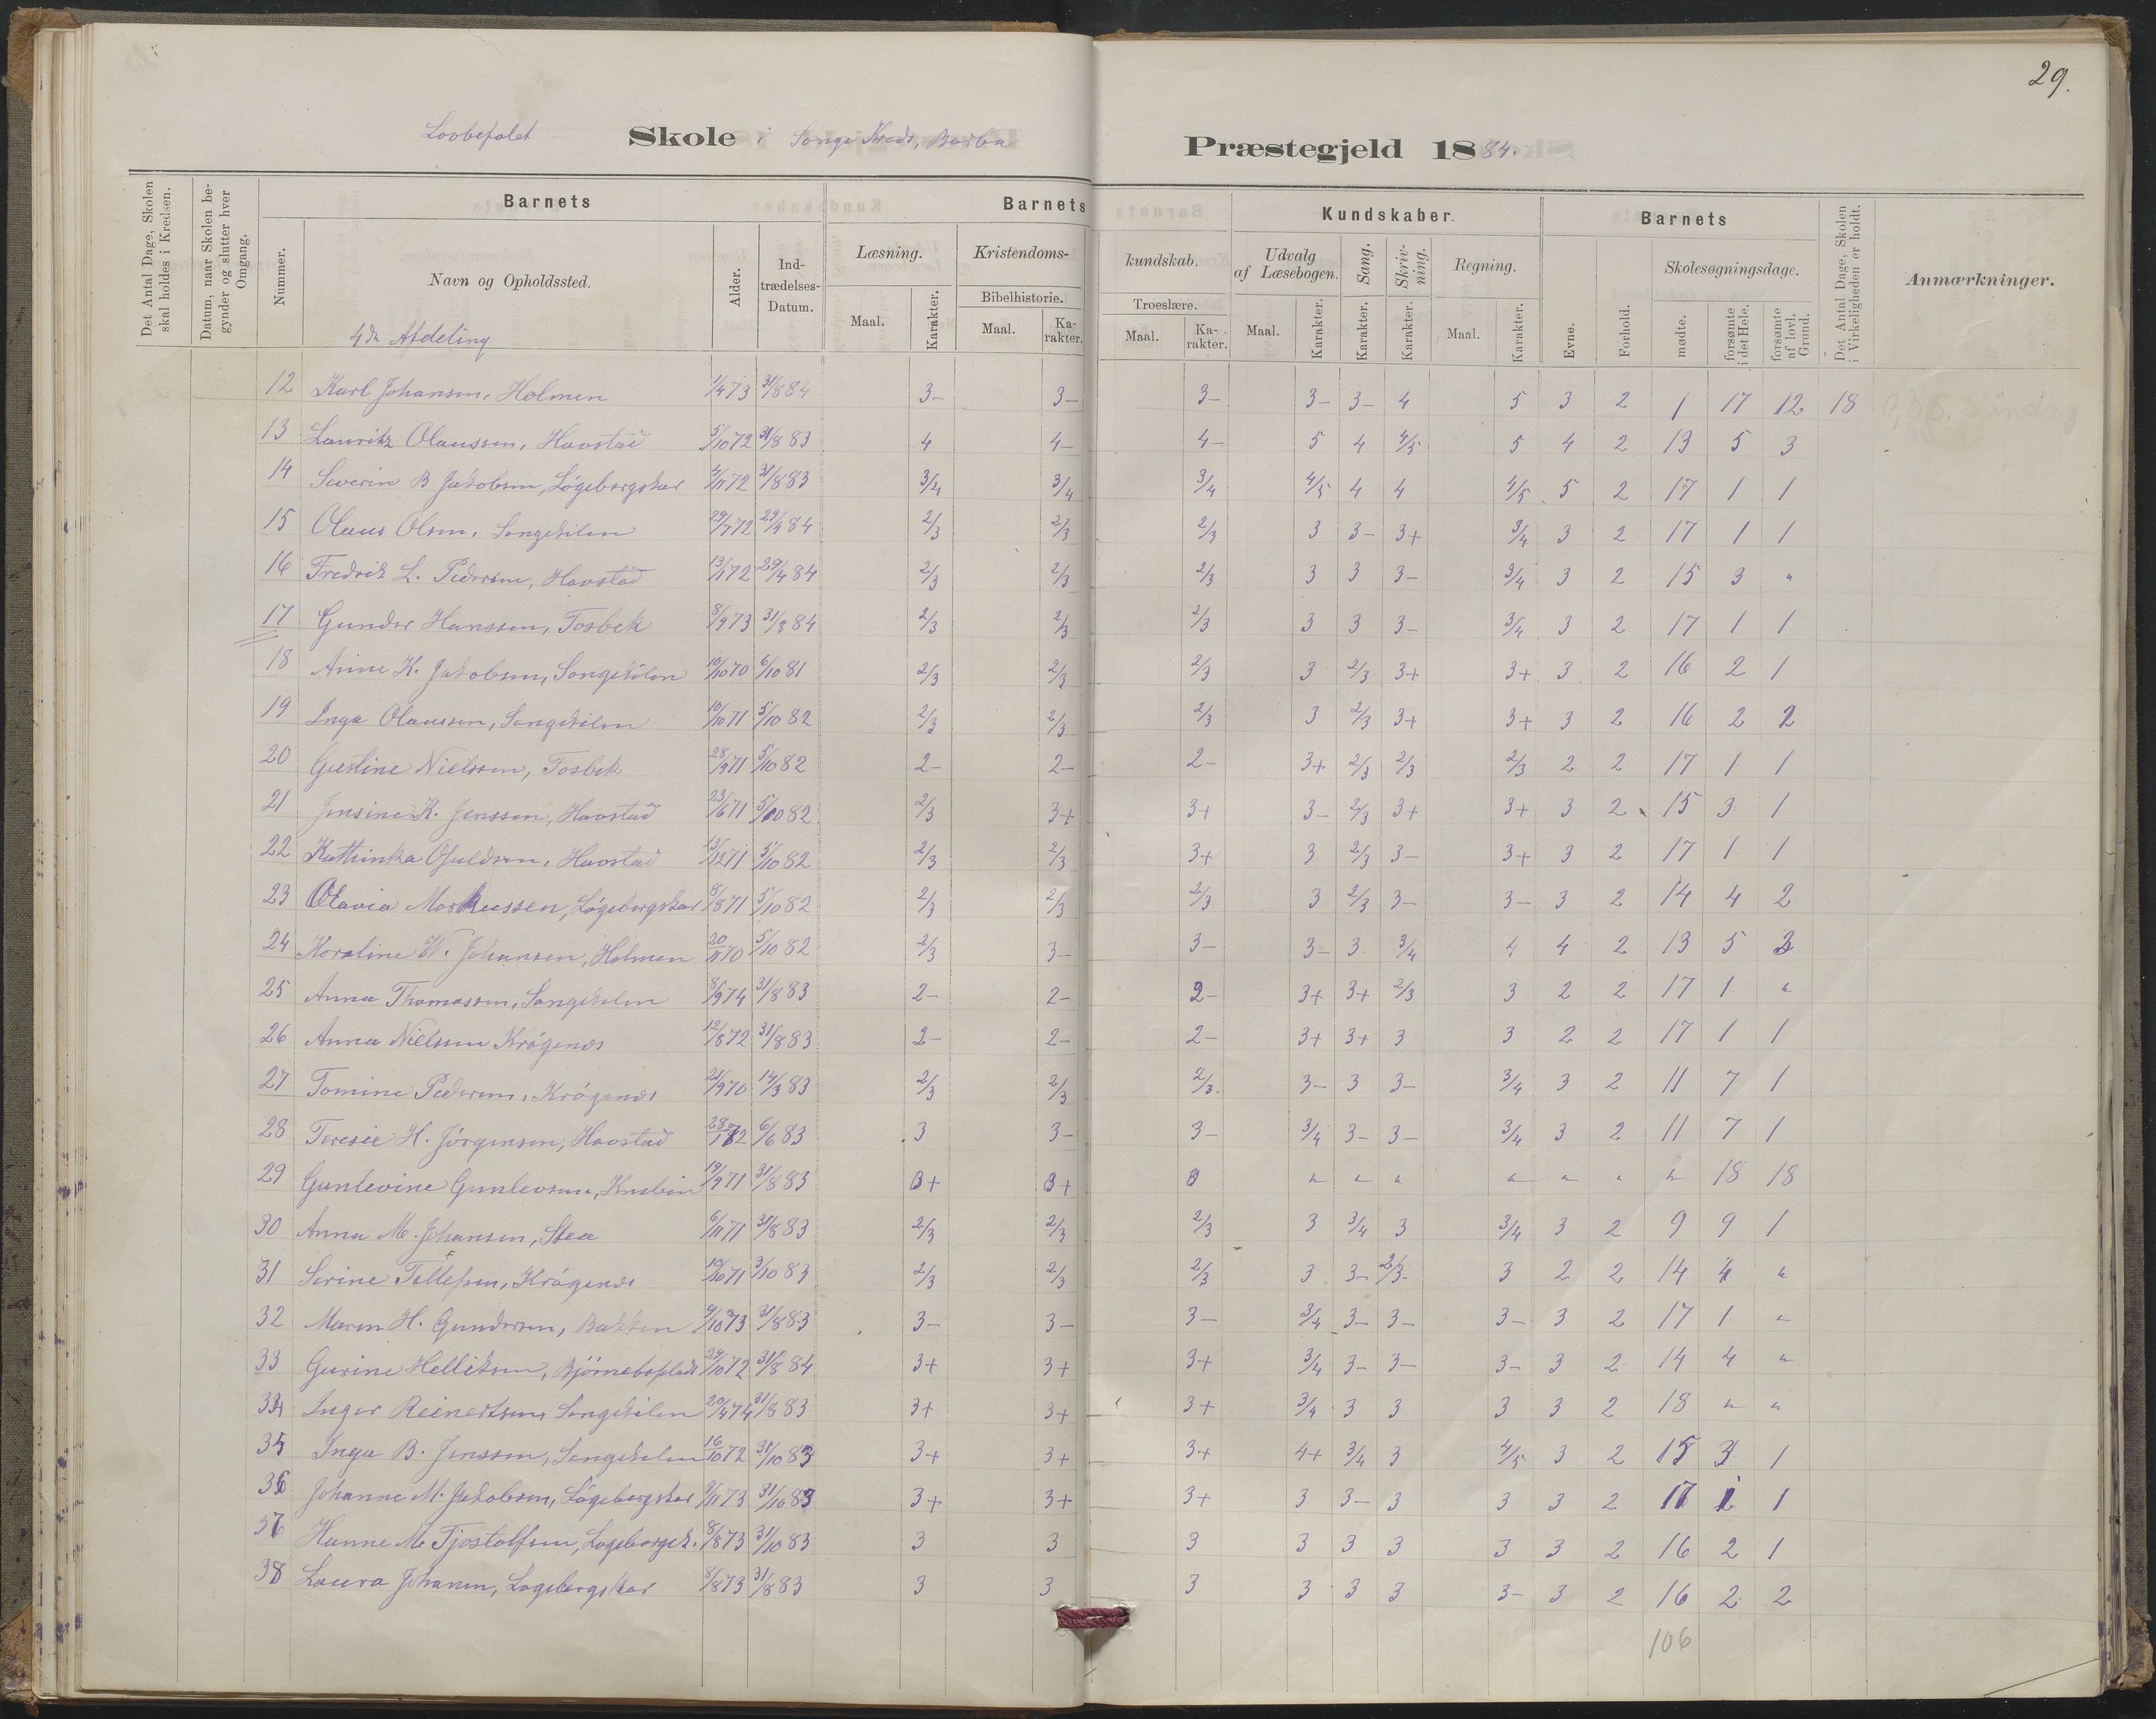 29.
Lovbefalet Skole i Songe Kreds, Barbu Præstegjeld 1884.
Det Antal Dage, Skolen skal holdes i Kredsen.
Datum, naar Skolen begynder og slutter hver Omgang.
Barnets
Nummer.
Navn og Opholdssted.
Alder.
Indtrædelses-Datum.
Barnets Kundskaber.
Læsning. Maal. Karakter.
Kristendomskundskab.
Bibelhistorie. Maal. Karakter.
Troeslære. Maal. Karakter.
Udvalg af Læsebogen. Maal. Karakter.
Sang. Karakter.
Skrivning. Karakter.
Regning. Maal. Karakter.
Barnets
Evne.
Forhold.
Skolesøgningsdage.
mødte.
forsømte i det Hele.
forsømte af lovl. Grund.
Det Antal Dage, Skolen i Virkeligheden er holdt.
Anmærkninger.
4de Afdeling
12 Karl Johansen, Holmen 1/4 73 31/8 84 3- 3- 3- 3- 3- 4 5 3 2 1 17 12 18
13 Lauritz Olaussen, Havstad 5/10 72 31/8 83 4 4- 4- 5 4 4/5 5 4 2 13 5 3
14 Severin B Jakobsen, Løgebergskar 4/11 72 31/8 83 3/4 3/4 3/4 4/5 4 4 4/5 5 2 17 1 1
15 Olaus Olsen, Songekilen 29/7 72 29/4 84 2/3 2/3 2/3 3 3- 3+ 3/4 3 2 17 1 1
16 Fredrik L. Pedersen, Havstad 13/1 72 29/4 84 2/3 2/3 2/3 3 3 3- 3/4 3 2 15 3 "
17 Gunder Hanssen, Tosbek 8/9 73 31/8 84 2/3 2/3 2/3 3 3 3- 3/4 3 2 17 1 1
18 Anne K. Jakobsen, Songekilen 10/10 70 6/10 81 2/3 2/3 2/3 3 2/3 3+ 3+ 3 2 16 2 1
19 Inga Olaussen, Songekilen 10/10 71 5/10 82 2/3 2/3 2/3 3 2/3 3+ 3+ 3 2 16 2 2
20 Gustine Nielssen, Tosbek 28/9 71 5/10 82 2- 2- 2- 3+ 2/3 2/3 2/3 2 2 17 1 1
21 Jensine K. Jenssen, Havstad 23/6 71 5/10 82 2/3 3+ 3+ 3- 2/3 3+ 3+ 3 2 15 3 1
22 Kathinka Osuldsen, Havstad 13/12 71 5/10 82 2/3 2/3 3+ 3 2/3 3- 3+ 3 2 17 1 1
23 Olavia Markussen, Løgebergskar 8/8 71 5/10 82 2/3 2/3 2/3 3 2/3 3- 3- 3 2 14 4 2
24 Karoline W. Johansen, Holmen 20/11 70 5/10 82 2/3 3- 3- 3- 3 3/4 4 4 2 13 5 3
25 Anna Thomassen, Songekilen 8/9 74 31/8 83 2- 2- 2- 3+ 3+ 2/3 3 2 2 17 1 "
26 Anna Nielssen Krøgenæs 12/8 72 31/8 83 2- 2- 2- 3+ 3+ 3 3 2 2 17 1 1
27 Tomine Pedersen, Krøgenæs 21/9 70 14/3 83 2/3 2/3 2/3 3- 3 3- 3/4 3 2 11 7 1
28 Teresie H. Jørgensen, Havstad 28/1 72 6/6 83 3 3- 3- 3/4 3- 3- 3/4 3 2 11 7 1
29 Gunlevine Gunlevsen, 19/9 71 31/8 83 3+ 3+ 3 " " " " " " " 18 18
30 Anna M. Johansen, Stea 6/11 71 31/8 83 2/3 2/3 2/3 3 3/4 3 3/4 3 2 9 9 1
31 Serine Tellefsen, Krøgenæs 10/10 71 3/10 83 2/3 2/3 2/3 3 3- 2/3- 3 2 2 14 4 "
32 Maren H. Gundersen, Bakken 9/10 73 31/8 83 3- 3- 3- 3/4 3- 3- 3- 3 2 17 1 "
33 Gurine Helliksen, Bjørneboplads 24/10 72 31/8 84 3+ 3+ 3+ 3/4 3- 3- 3- 3 2 14 4 "
34 Inger Reinertsen, Songekilen 20/4 74 31/8 83 3+ 3+ 3+ 3/4 3 3 3 3 2 18 " "
35 Inga B. Jenssen, Songekilen 16/10 72 31/10 83 3+ 3+ 3+ 4+ 3/4 3 4/5 3 2 15 3 1
36 Johanne M. Jakobsen, Løgebergskar 9/11 73 31/10 83 3+ 3+ 3+ 3 3- 3 3 3 2 17 1 1
37 Hanne M. Tjøstolfsen, Løgebergsk. 8/8 73 31/10 83 3 3 3 3 3 3 3 3 2 16 2 1
38 Laura Johansen, Løgebergskar 8/8 73 31/8 83 3 3 3 3 3 3 3- 3 2 16 2 2
106